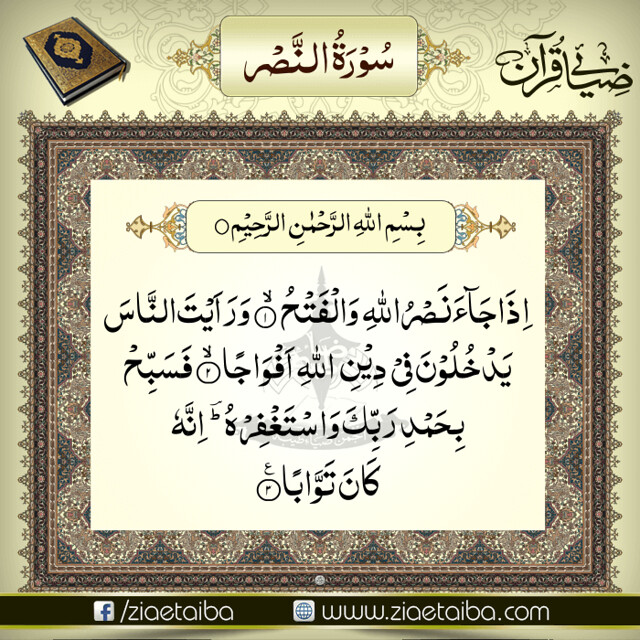 سُوْرَةُ النَّصْر
ضیائے قرآن
بِسْمِ اللهِ الرَّحْمٰنِ الرَّحِيْمِ○
اِذَا جَآءَ نَصْرُ اللهِ وَالْفَتْحُ ۙ﴿۱﴾ وَرَاَيْتَ النَّاسَ
يَدْخُلُوْنَ فِيْ دِيْنِ اللهِ اَفْوَاجًا ۙ﴿۲﴾ فَسَبِّحْ
بِحَمْدِ رَبِّكَ وَاسْتَغْفِرْهُ ؕ اِنَّهٗ
كَانَ تَوَّابًا ﴿۳﴾ ع
/ziaetaiba
www.ziaetaiba.com